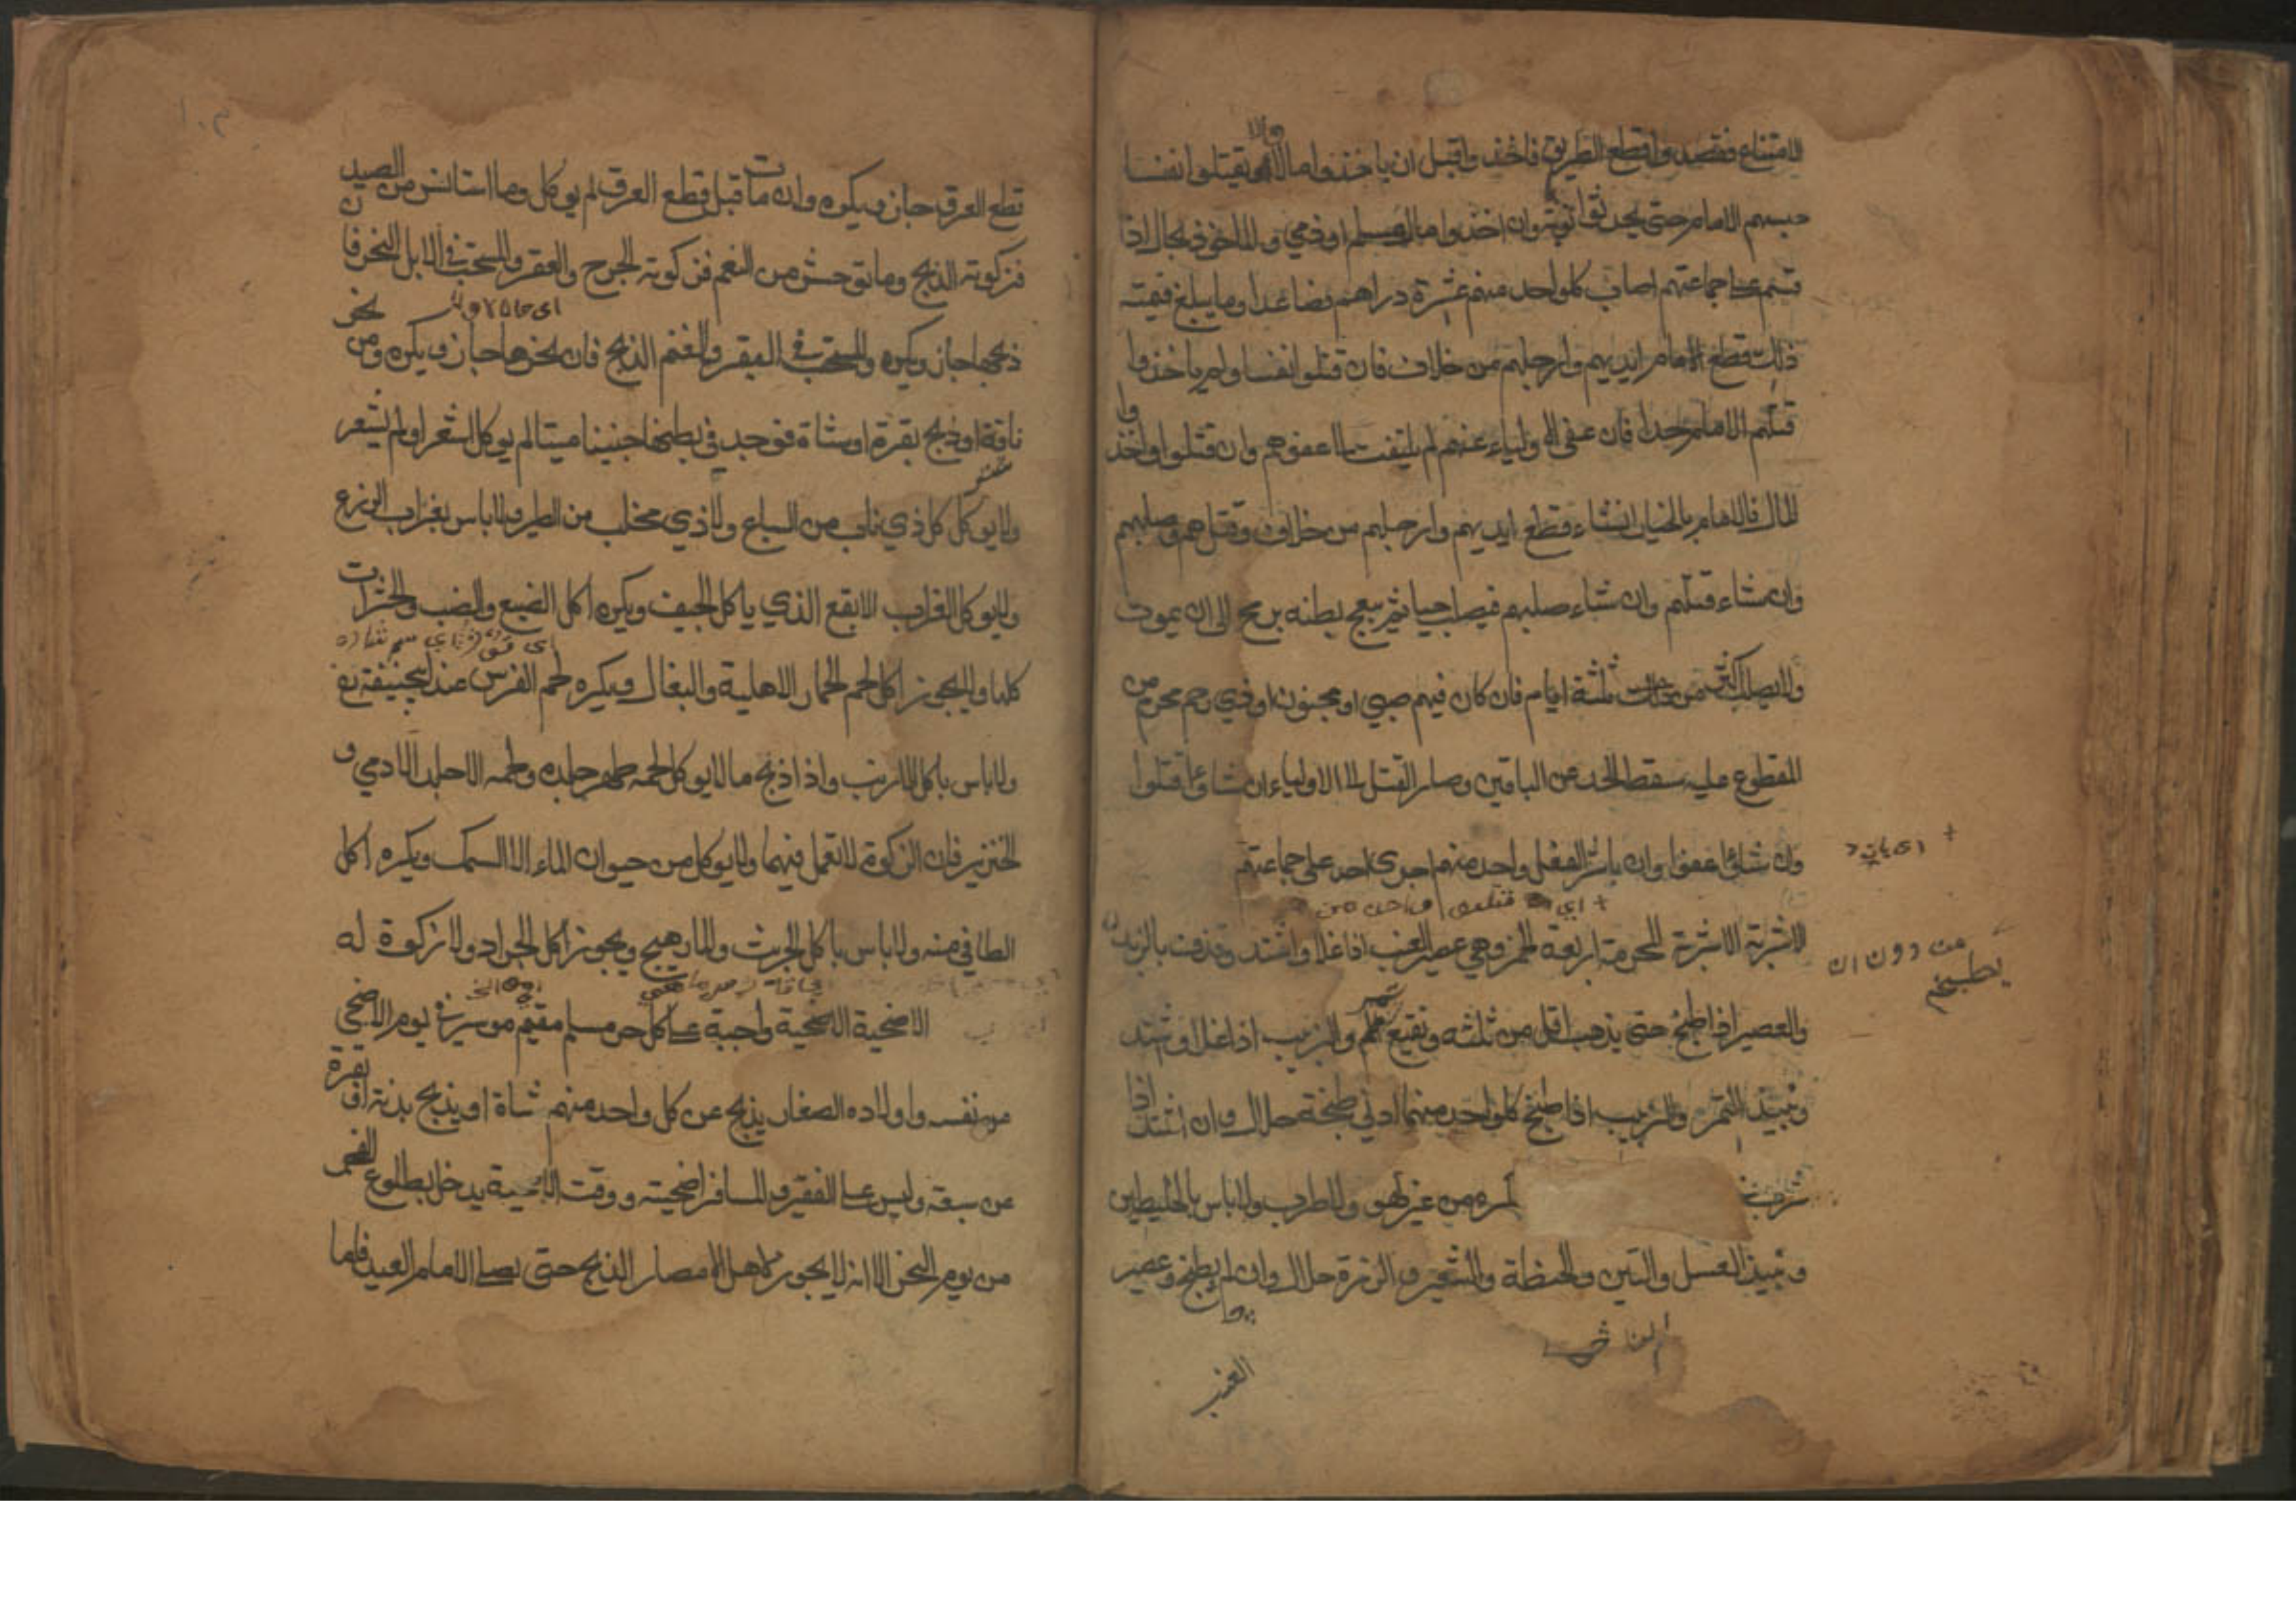 الامتناع فقصدوا قطع الطريق فاخذوا قبل ان ياخذوا مالا ولا يقتلوا نفسا
حبسهم الامام حتى يحدثوا توبة وان اخذوا مال مسلم او ذمي والماخوذ بحال اذا
قسم على جماعتهم اصاب كل واحد منهم عشرة دراهم فصاعدا وما يبلغ قيمته
ذلك قطع الامام ايديهم وارجلهم من خلاف فان قتلوا نفسا ولم ياخذوا
قتلهم الامام حدا فان عفى الاولياء عنهم لم يلتفت الى عفوهم وان قتلوا واخذوا
المال فالامام بالخيار ان شاء قطع ايديهم وارجلهم من خلاف وقتلهم وصلبهم
وان شاء قتلهم وان شاء صلبهم فيصلب حيا ثم يبعج بطنه برمح الى ان يموت
ولا يصلب اكثر من ثلثة ايام فان كان فيهم صبي او مجنون او ذي رحم محرم من
المقطوع عليه سقط الحد عن الباقين وصار القتل الى الاولياء ان شاؤا قتلوا
وان شاؤا عفوا وان باشر الفعل واحد منهم اجرى احد على جماعتهم
+ اي قتلهم واحد من
الاشربة الاشربة المحرمة اربعة الخمر وهي عصير العنب اذا غلا واشتد وقذفت بالزبد
من دون ان
يطبخ
والعصير اذا طبخ حتى يذهب اقل من ثلثه ونقيع التمر والزبيب اذا غلا واشتد
ونبيذ التمر والزبيب اذا طبخ كل واحد منهما ادنى طبخة حلال وان اشتد اذا
شرب من غير لهو ولا طرب ولا باس بالخليطين
ونبيذ العسل والتين والحنطة والشعير والذرة حلال وان لم يطبخ وعصير
العنب
قطع العرق جاز ويكره وان مات قبل قطع العرق لم يوكل وما استانس من الصيد
فزكوته الذبح وما توحش من النعم فزكوته الجرح والعقر والمستحب في الابل النحر فان
ذبحها جاز ويكره والمستحب في البقر والغنم الذبح فان نحرها جاز ويكره ومن نحر
ناقة او ذبح بقرة او شاة فوجد في بطنها جنينا ميتا لم يوكل اشعر او لم يشعر
ولا يوكل كل ذي ناب من السباع ولا ذي مخلب من الطير ولا باس بغراب الزرع
ولا يوكل الغراب الابقع الذي ياكل الجيف ويكره اكل الضبع والضب والحشرات
كلها ولا يجوز اكل لحم الحمار الاهلية والبغال ويكره لحم الفرس عند ابي حنيفة
ولا باس باكل الارنب واذا ذبح ما لا يوكل لحمه طهر جلده ولحمه الا جلد الادمي و
الخنزير فان الزكوة لا تعمل فيهما ولا يوكل من حيوان الماء الا السمك ويكره اكل
الطافي منه ولا باس باكل الجريث والمارهيج ويجوز اكل الجراد ولا زكوة له
الاضحية الاضحية واجبة على كل حر مسلم مقيم موسر في يوم الاضحي
عن نفسه واولاده الصغار يذبح عن كل واحد منهم شاة او يذبح بدنة او بقرة
عن سبعة وليس على الفقير والمسافر اضحية ووقت الاضحية يدخل بطلوع الفجر
من يوم النحر الا انه لا يجوز لاهل الامصار الذبح حتى يصلي الامام العيد فاما